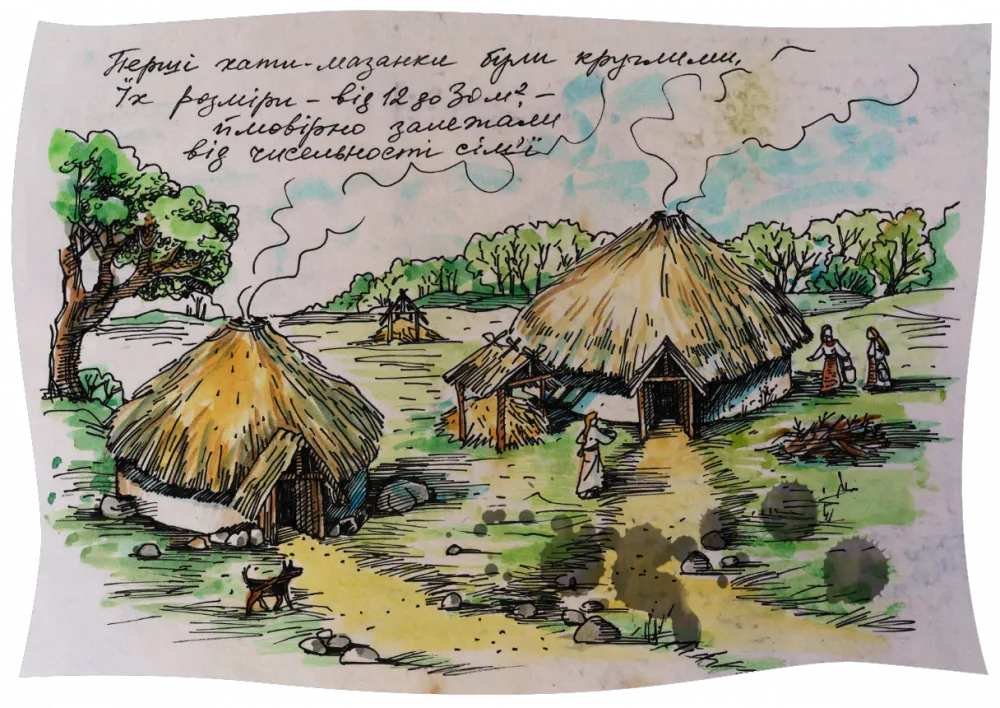 Перші хати-мазанки були круглими.
Їх розміри – від 12 до 30 м², –
ймовірно залежали
від чисельності сім'ї